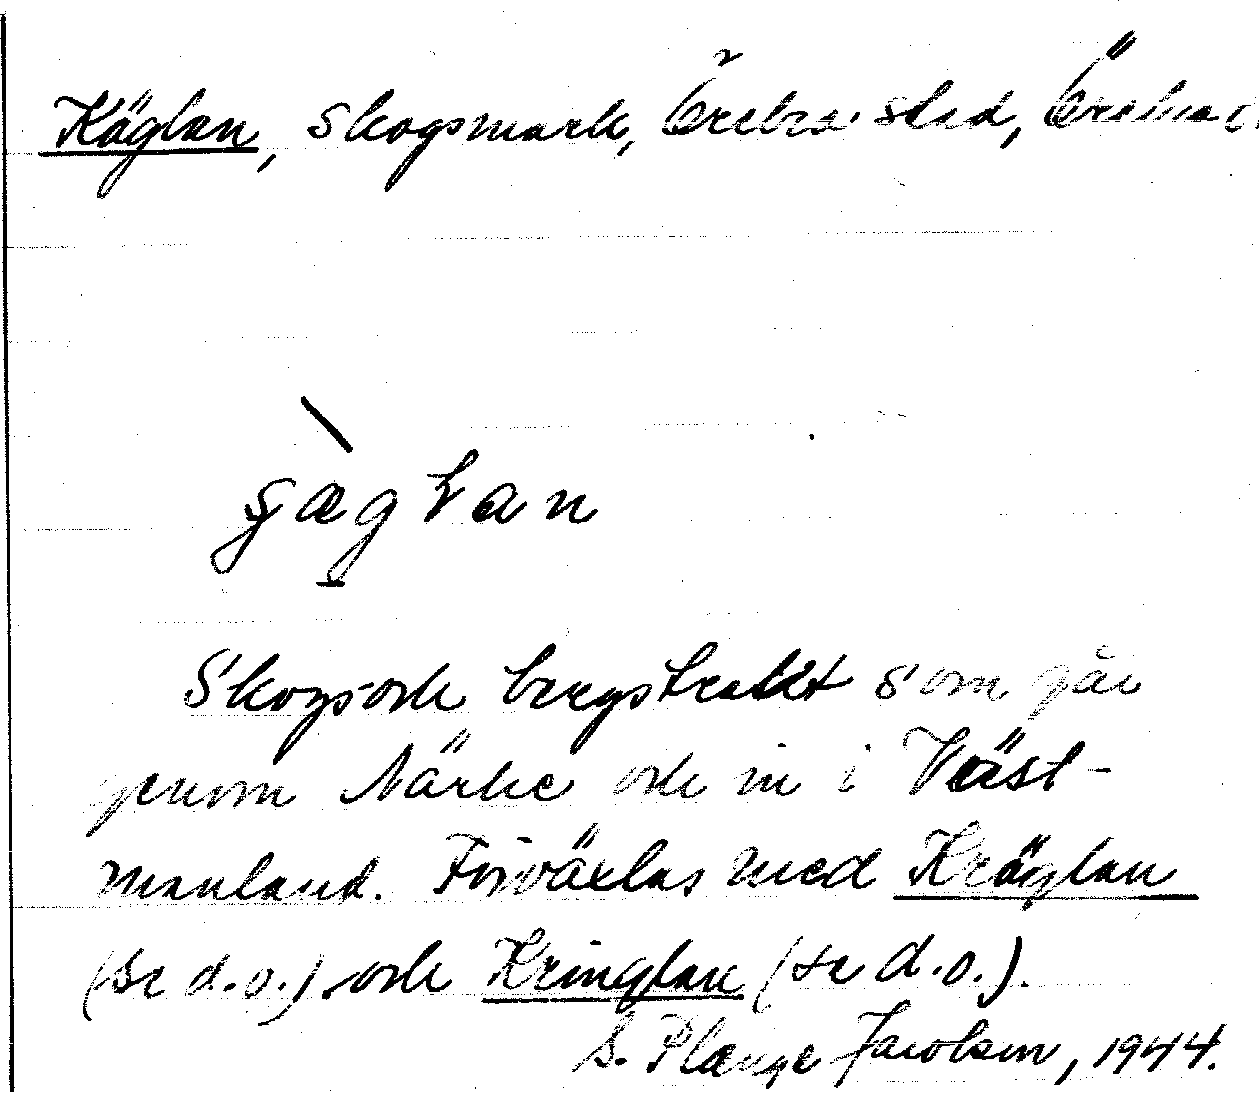 Käglan, skogsmark, Örebro stad, Örebro
Skogs och bergstrakt som går
genom Närke och in i Väst-
manland. Förväxlas med Kräglan
(se d.o.) och Kringlan (se d.o.).
S. Plænge Jacobson, 1944.